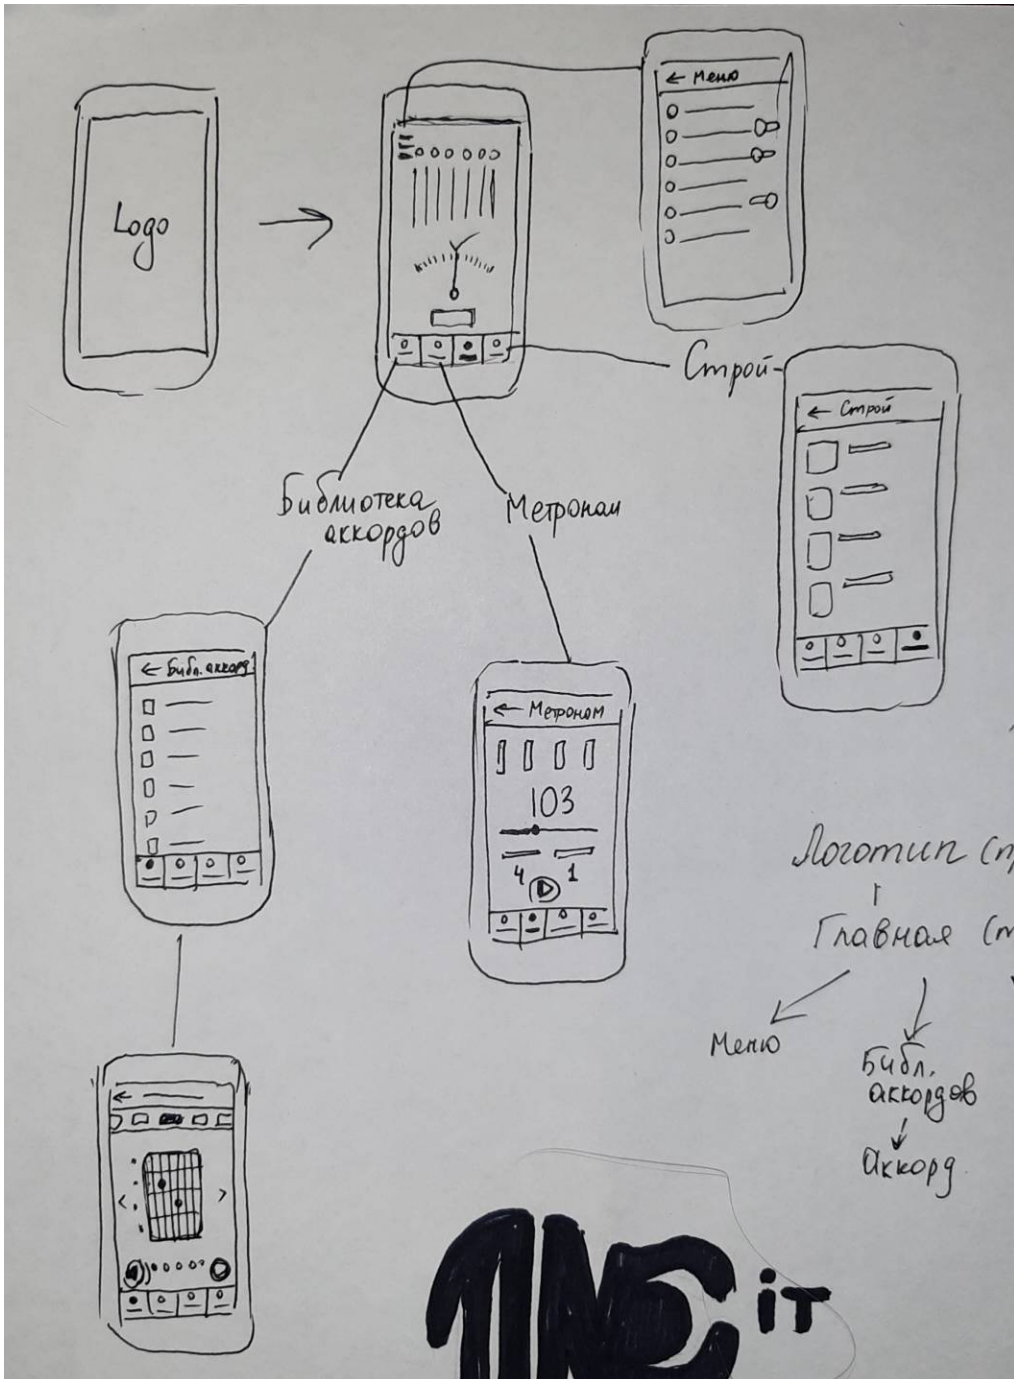 ← Меню
Logo
Строй
← Строй
Библиотека
аккордов
Метроном
← Библ. аккорд.
← Метроном
103
4 1
Логотип
Главная
Меню
Библ.
аккордов
Аккорд
TUNE iT